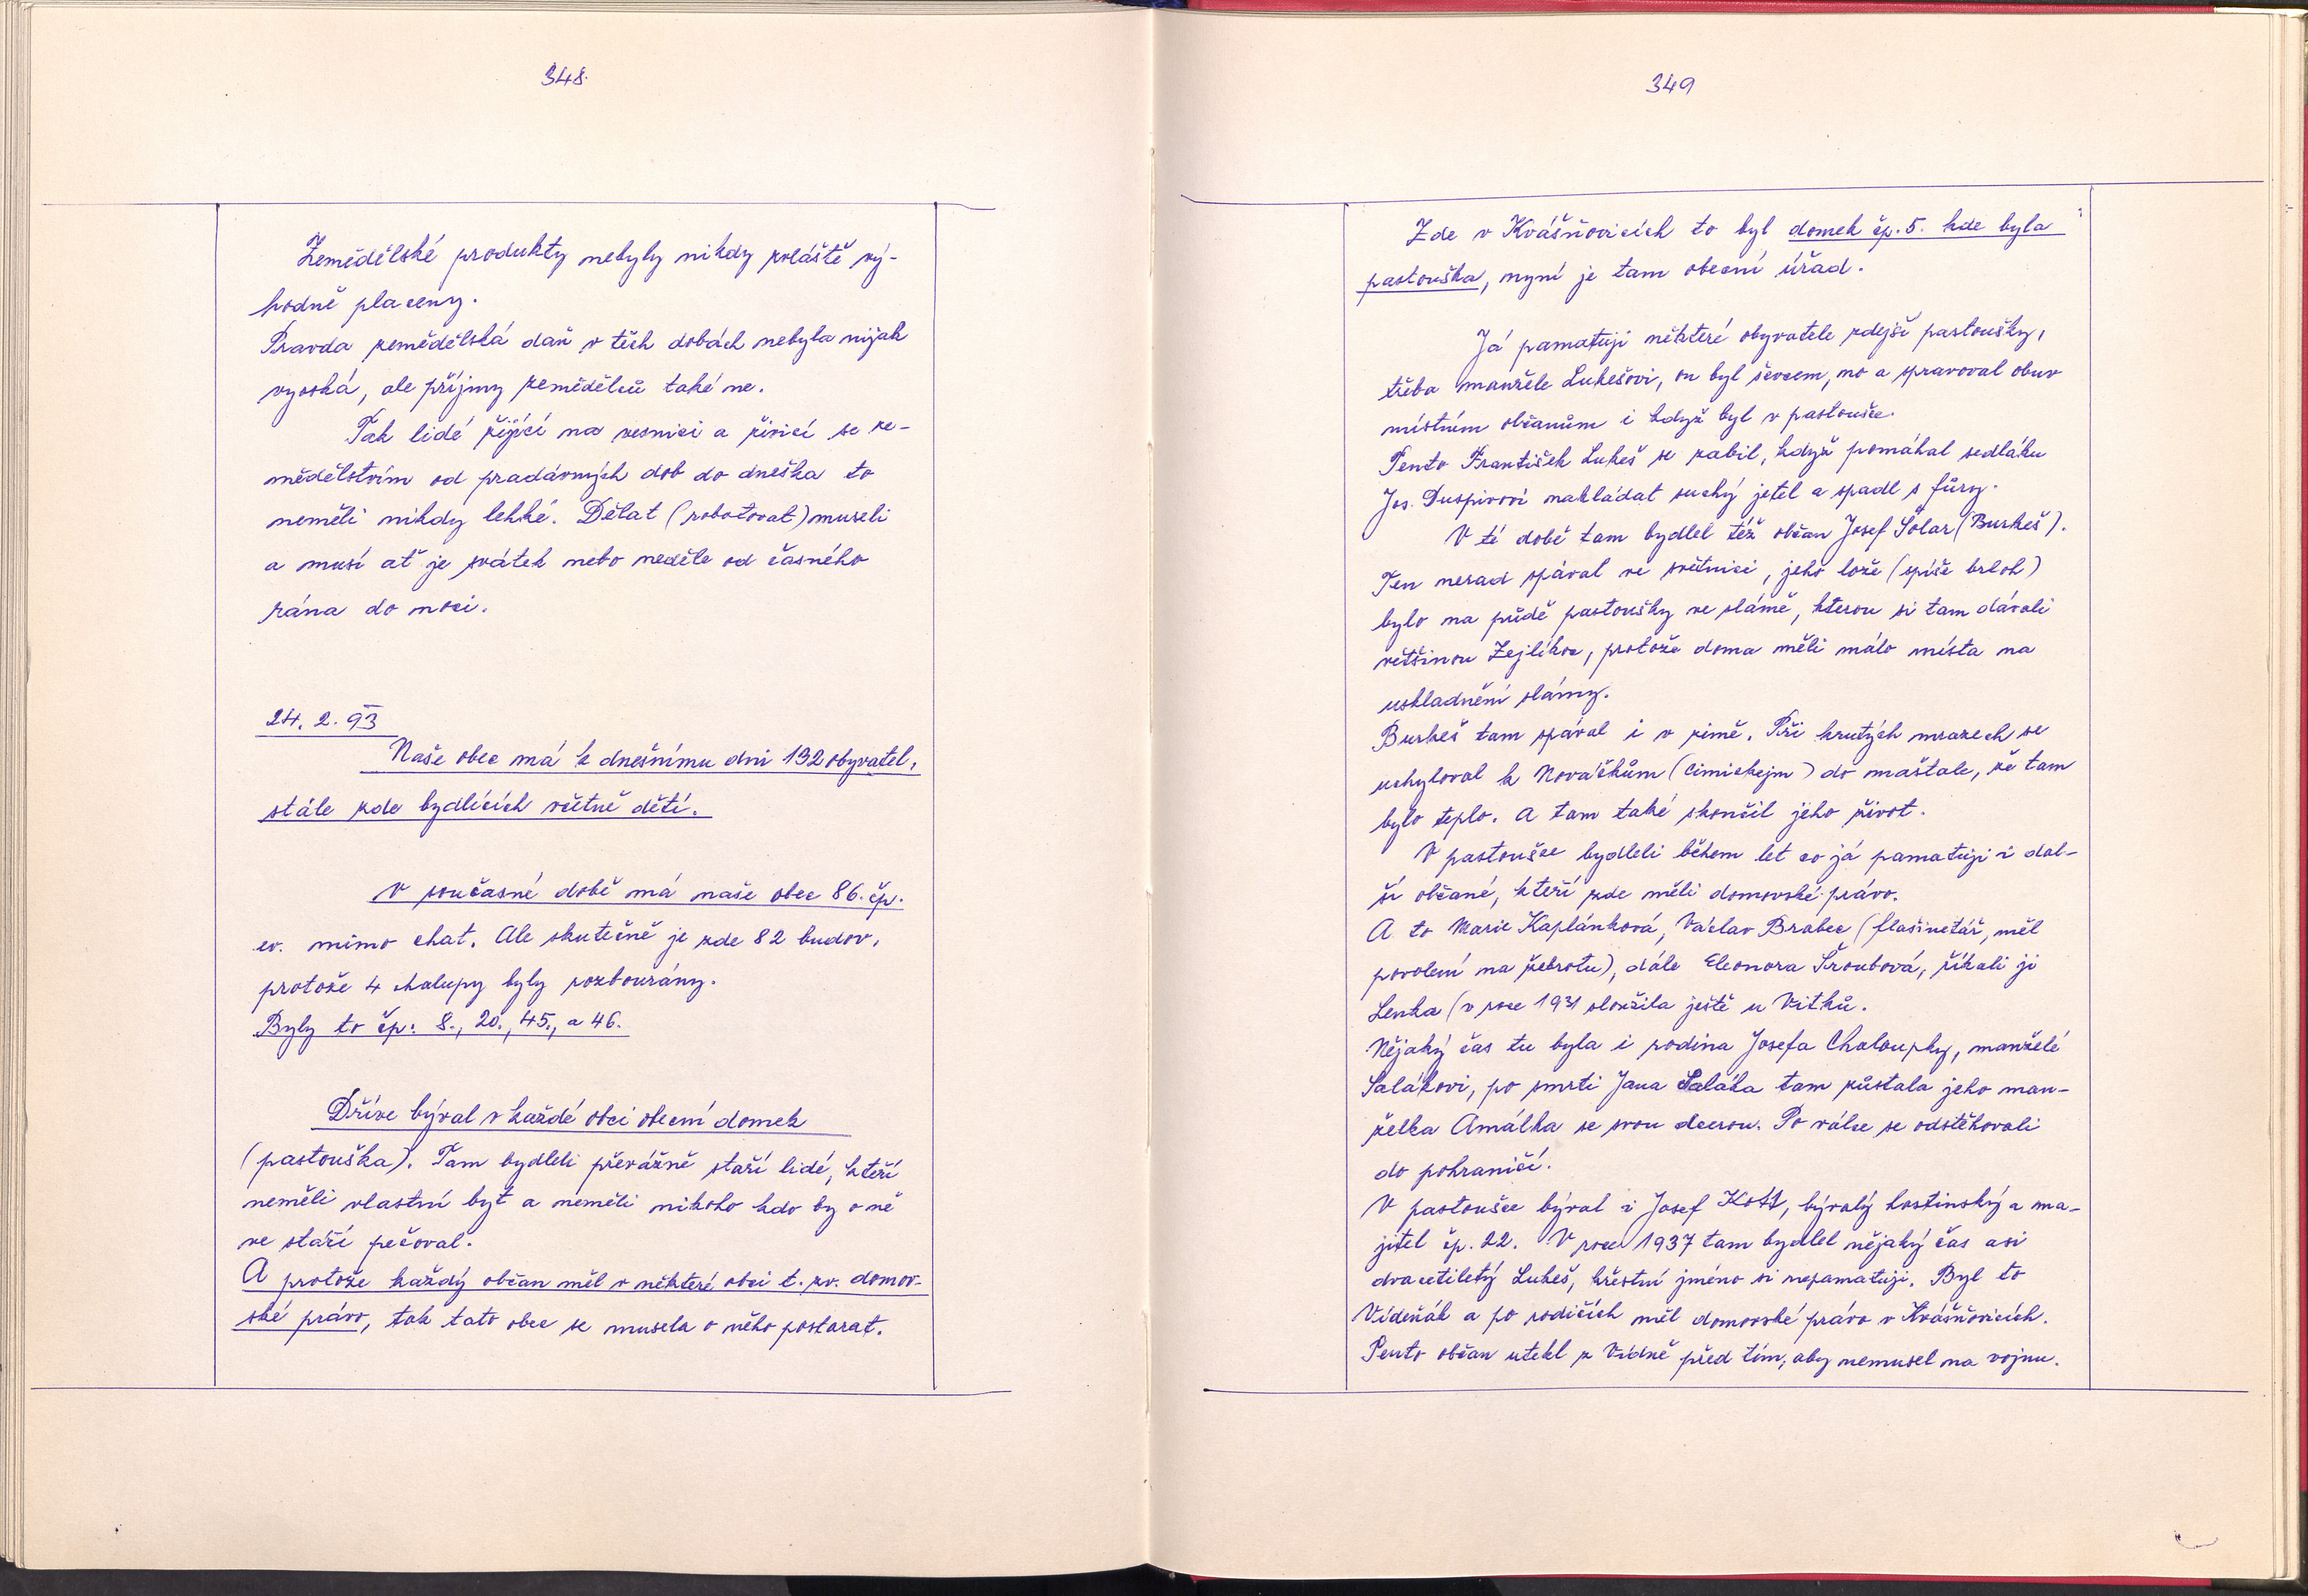 348.
Zemědělské produkty nebyly nikdy zvláště vý-
hodně placeny.
Pravda zemědělská daň v těch dobách nebyla nijak
vysoká, ale příjmy zemědělců také ne.
Tak lidé žijící na vesnici a živící se ze-
mědělstvím od pradávných dob do dneška to
neměli nikdy lehké. Dělat (robotovat) museli
a musí ať je svátek nebo neděle od časného
rána do noci.
24. 2. 93
Naše obec má k dnešnímu dni 192 obyvatel,
stále zde bydlících včetně dětí.
V současné době má naše obec 86. čp.
ev. mimo chat. Ale skutečně je zde 82 budov,
protože 4 chalupy byly rozbourány.
Byly to čp: 8., 20., 45., a 46.
Dříve býval v každé obci obecní domek
(pastouška). Tam bydleli převážně staří lidé, kteří
neměli vlastní byt a neměli nikoho kdo by o ně
ve stáří pečoval.
A protože každý občan měl v některé obci t. zv. domov-
ské právo, tak tato obec se musela o něho postarat.
349
Zde v Kvášňovicích to byl domek čp. 5. kde byla
pastouška, nyní je tam obecní úřad.
Já pamatuji některé obyvatele zdejší pastoušky,
třeba manžele Lukešovi, on byl ševcem, no a spravoval obuv
místním občanům i když byl v pastoušce.
Tento František Lukeš se zabil, když pomáhal sedláku
Jos. Duspivovi nakládat suchý jetel a spadl s fůry.
V té době tam bydlel též občan Josef Šolar (Burkeš).
Ten nerad spával ve světnici, jeho lože (spíše brloh)
bylo na půdě pastoušky ve slámě, kterou si tam dávali
většinou Zejlíkoc, protože doma měli málo místa na
uskladnění slámy.
Burkeš tam spával i v zimě. Při krutých mrazech se
uchyloval k Nováčkům (Cimickejm) do maštale, že tam
bylo teplo. A tam také skončil jeho život.
V pastoušce bydleli během let co já pamatuji i dal-
ší občané, kteří zde měli domovské právo.
A to Marie Kaplánková, Václav Brabec (flašinetář, měl
povolení na žebrotu), dále Eleonora Šroubová, říkali jí
Lenka (v roce 1931 sloužila ještě u Vitků.
Nějaký čas tu byla i rodina Josefa Chaloupky, manželé
Salákovi, po smrti Jana Saláka tam zůstala jeho man-
želka Amálka se svou dcerou. Po válce se odstěhovali
do pohraničí.
V pastoušce býval i Josef Kott, bývalý hostinský a ma-
jitel čp. 22. V roce 1937 tam bydlel nějaký čas asi
dvacetiletý Lukeš, křestní jméno si nepamatuji. Byl to
Vídeňák a po rodičích měl domovské právo v Kvášňovicích.
Tento občan utekl z Vídně před tím, aby nemusel na vojnu.